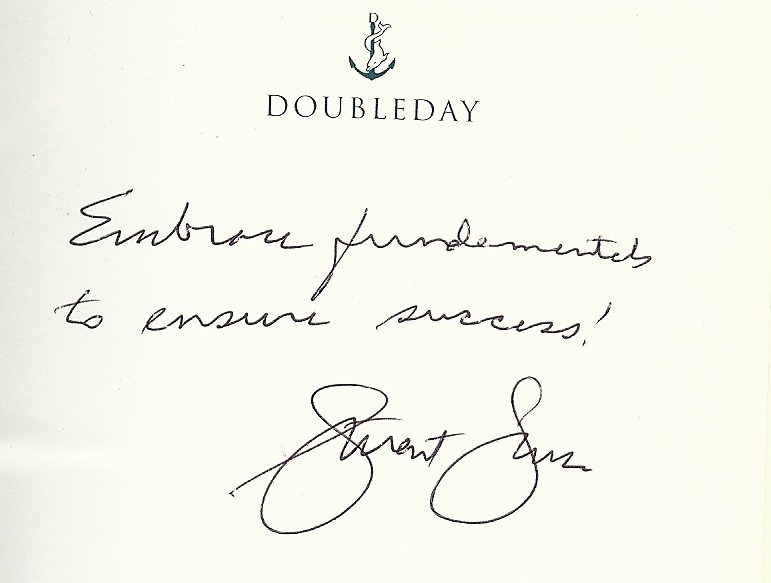 DOUBLEDAY
Embrace fundamentals
to ensure success!
Stuart